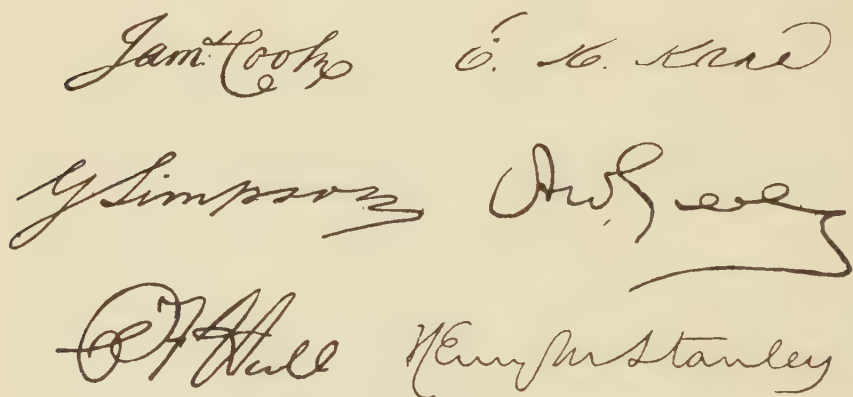 Jams. Cook E. K. Kane
G Simpson A W. Greely
C F Hall Henry M Stanley